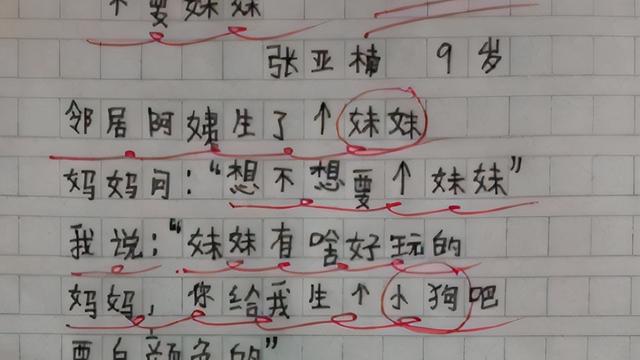 不要妹妹
张亚楠 9岁
邻居阿姨生了个妹妹
妈妈问：“想不想要个妹妹”
我说：“妹妹有啥好玩的
妈妈，你给我生个小狗吧
要白颜色的”